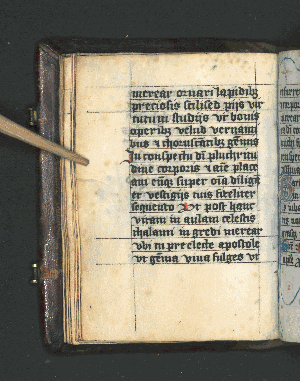 merear ornari lapidibȝ
preciosis scilicet pijs vir
tutum studijs ut bonis
operibȝ velud vernanti
bus & choruscantibȝ gemis
In conspectu dei pulchritu
dine corporis & aīe place
am eūqȝ super oīa diligā
et vestigijs eius fideliter
sequendo Ut post hanc
vitam in aulam celestis
thalami in gredi merear
ubi tu preclecte apostole
ut gēma viva fulges ut